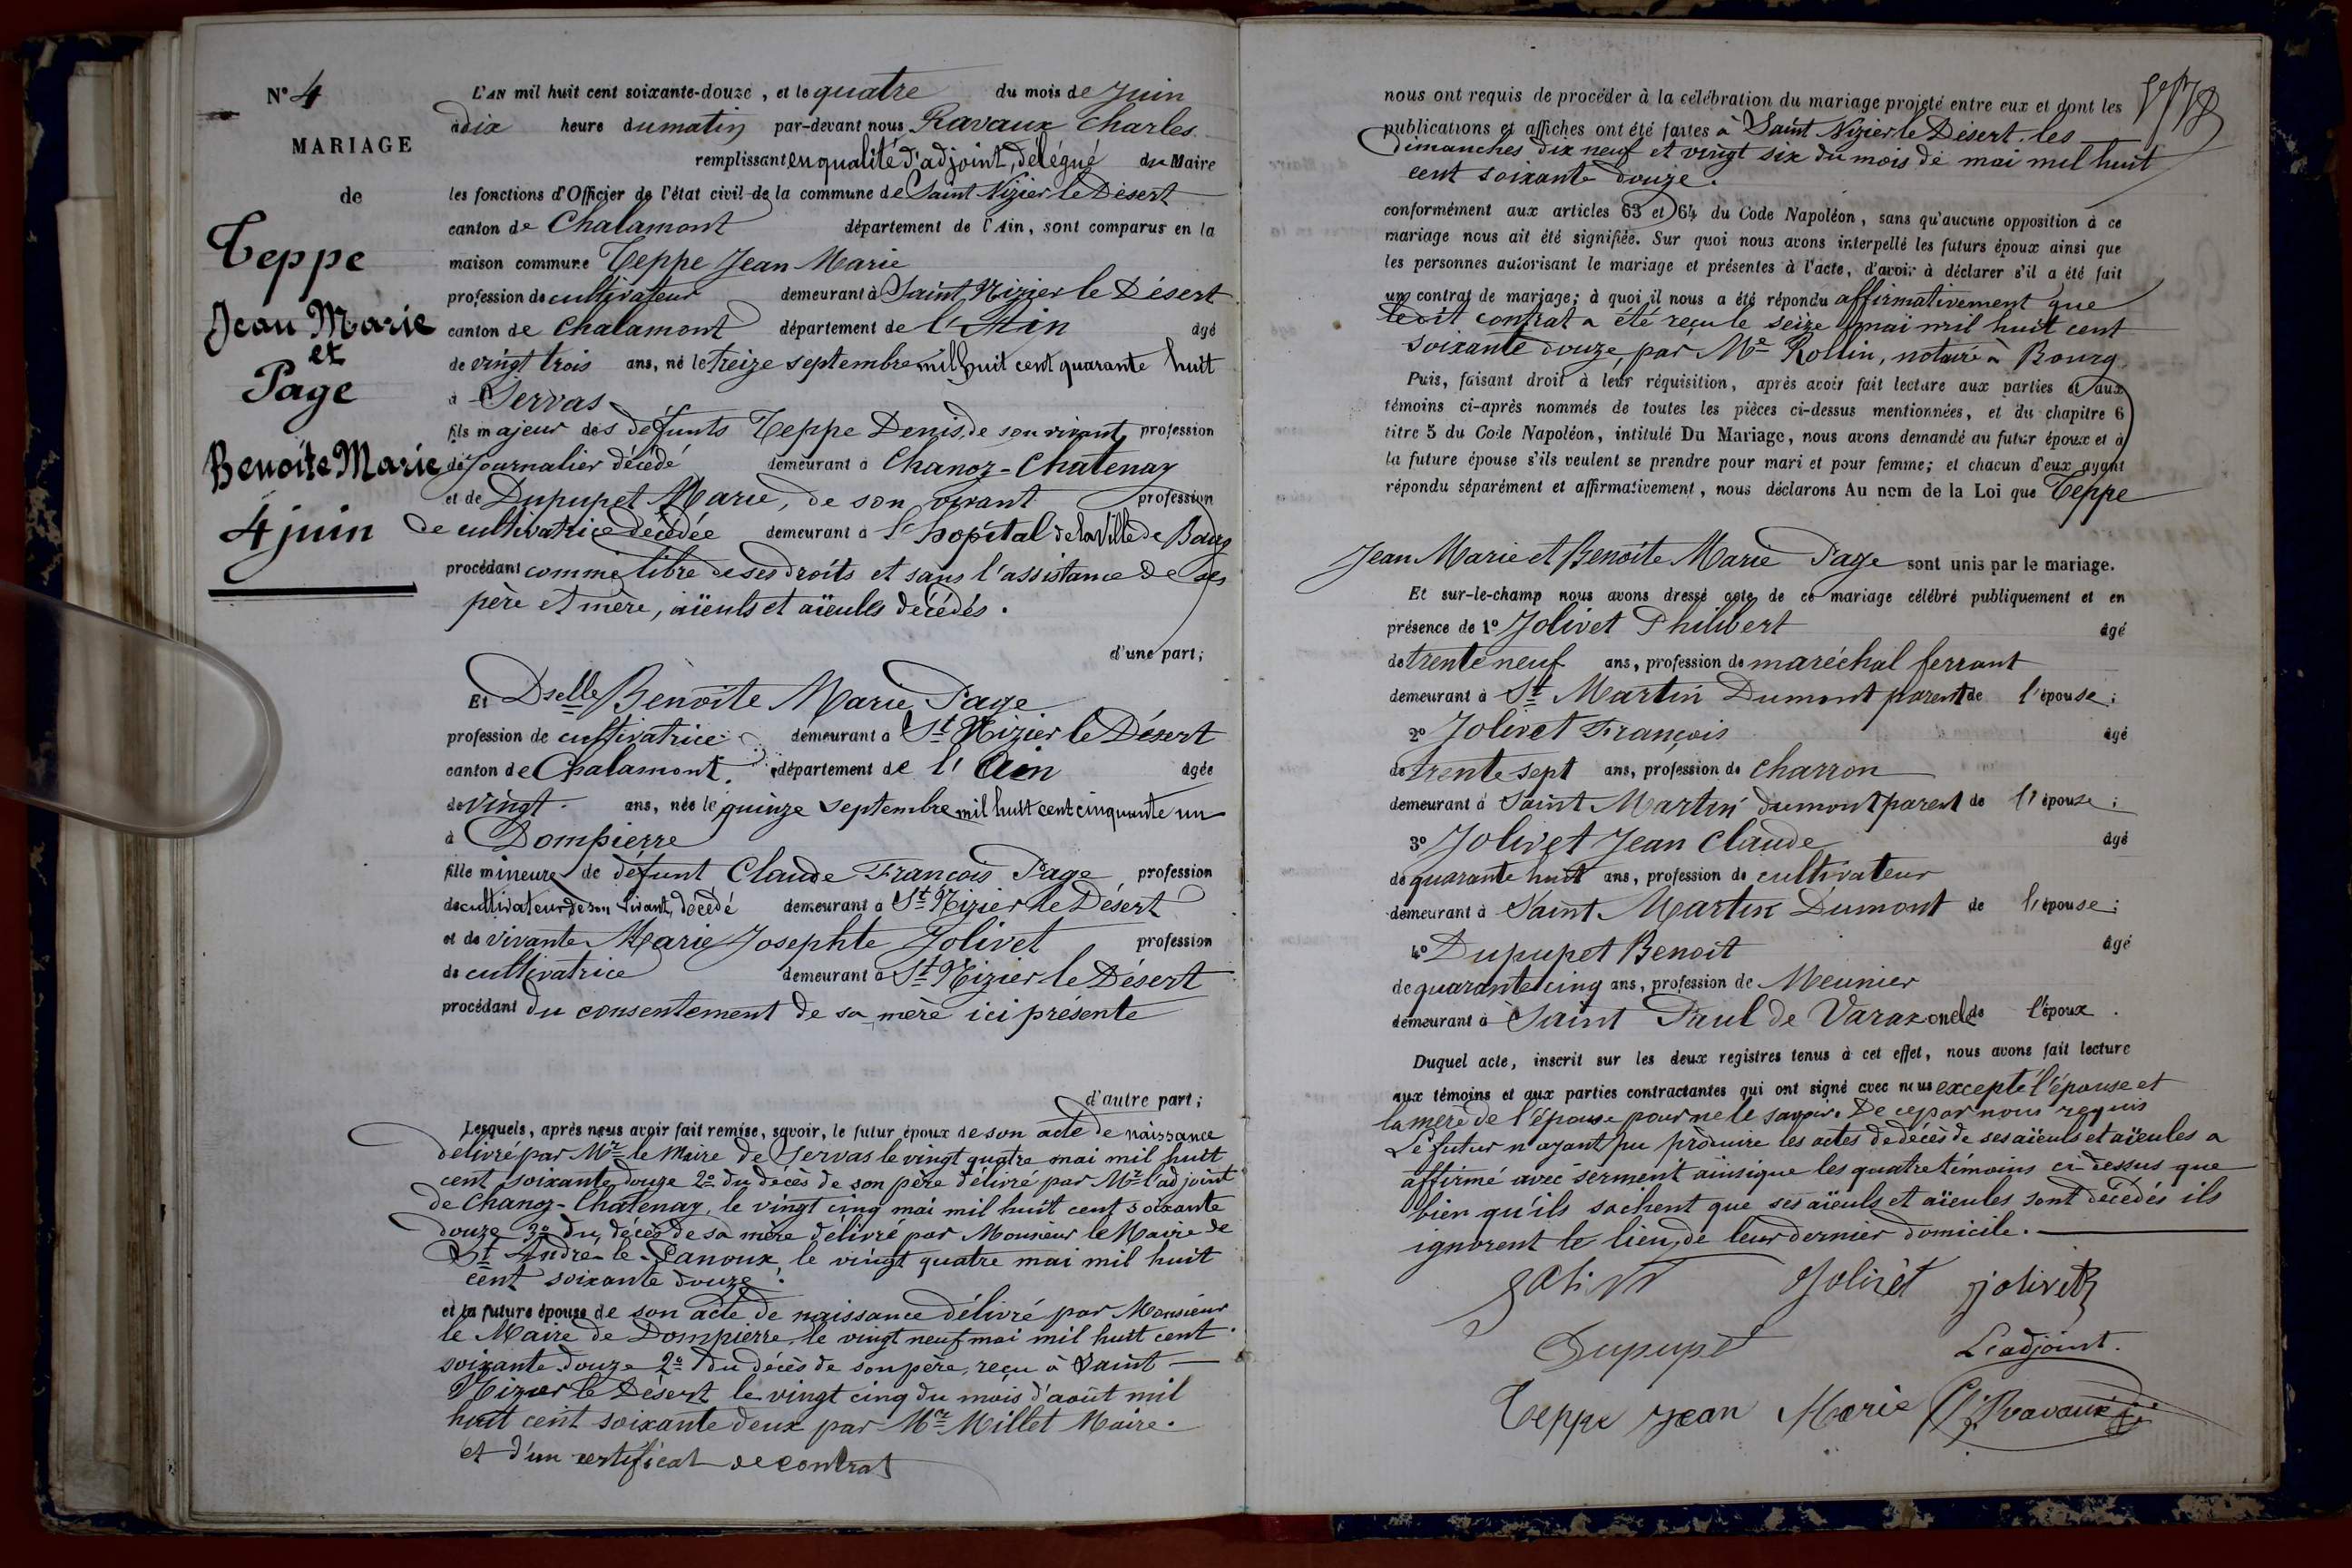 N° 4
MARIAGE
de
Teppe
Jean Marie
et
Page
Benoite Marie
4 juin
L'AN mil huit cent soixante-douze, et le quatre du mois de Juin
à dix heure du matin par-devant nous Ravaux Charles
remplissant en qualité d'adjoint, délégué du Maire
les fonctions d'Officier de l'état civil de la commune de Saint Nizier le Désert
canton de Chalamont département de l'Ain, sont comparus en la
maison commune Teppe Jean Marie
profession de cultivateur demeurant à Saint Nizier le Désert
canton de Chalamont département de l'Ain âgé
de vingt trois ans, né le treize septembre mil huit cent quarante huit
à Servas
fils majeur des défunts Teppe Denis, de son vivant profession
de Journalier décédé demeurant à Chanoz-Chatenay
et de Dupupet Marie, de son vivant profession
de cultivatrice décédée demeurant à l'hopital de la Ville de Bourg
procédant comme libre de ses droits et sans l'assistance de ses
père et mère, aïeuls et aïeules décédés.
d'une part;
Et Dselle Benoîte Marie Page
profession de cultivatrice demeurant à St Nizier le Désert
canton de Chalamont. département de l'Ain âgée
de vingt. ans, née le quinze septembre mil huit cent cinquante un
à Dompierre
fille mineure de défunt Claude François Page profession
de cultivateur de son vivant, décédé demeurant à St Nizier le Désert
et de vivante Marie Josephte Jolivet profession
de cultivatrice demeurant à St Nizier le Désert
procédant du consentement de sa mère ici présente
d'autre part;
Lesquels, après nous avoir fait remise, savoir, le futur époux de son acte de naissance
délivré par Mr le Maire de Servas le vingt quatre mai mil huit
cent soixante douze 2° du décès de son père délivré par Mr l'adjoint
de Chanoz-Chatenay, le vingt cinq mai mil huit cent soixante
douze 3° du décès de sa mère délivré par Monsieur le Maire de
St André-le-Panoux, le vingt quatre mai mil huit
cent soixante douze.
et la future épouse de son acte de naissance délivré par Monsieur
le Maire de Dompierre, le vingt neuf mai mil huit cent
soixante douze 2° du décès de son père, reçu à Saint
Nizier le Désert le vingt cinq du mois d'août mil
huit cent soixante deux par Mr Millet Maire.
et d'un certificat de contrat
nous ont requis de procéder à la célébration du mariage projeté entre eux et dont les
publications et affiches ont été faites à Saint Nizier le Désert. les
Dimanches dix neuf et vingt six du mois de mai mil huit
cent soixante douze.
conformément aux articles 63 et 64 du Code Napoléon, sans qu'aucune opposition à ce
mariage nous ait été signifiée. Sur quoi nous avons interpellé les futurs époux ainsi que
les personnes autorisant le mariage et présentes à l'acte, d'avoir à déclarer s'il a été fait
un contrat de mariage; à quoi il nous a été répondu affirmativement que
ledit contrat a été reçu le seize mai mil huit cent
soixante douze, par Me Rollin, notaire à Bourg.
Puis, faisant droit à leur réquisition, après avoir fait lecture aux parties et aux
témoins ci-après nommés de toutes les pièces ci-dessus mentionnées, et du chapitre 6
titre 5 du Code Napoléon, intitulé Du Mariage, nous avons demandé au futur époux et à
la future épouse s'ils veulent se prendre pour mari et pour femme; et chacun d'eux ayant
répondu séparément et affirmativement, nous déclarons Au nom de la Loi que Teppe
Jean Marie et Benoîte Marie Page sont unis par le mariage.
Et sur-le-champ nous avons dressé acte de ce mariage célébré publiquement et en
présence de 1° Jolivet Philibert âgé
de trente neuf ans, profession de maréchal ferrant
demeurant à St Martin Dumont parent de l'épouse;
2° Jolivet François âgé
de trente sept ans, profession de charron
demeurant à Saint Martin dumont parent de l'épouse;
3° Jolivet Jean Claude âgé
de quarante huit ans, profession de cultivateur
demeurant à Saint Martin Dumont de l'épouse;
4° Dupupet Benoit âgé
de quarante cinq ans, profession de Meunier
demeurant à Saint Paul de Varax oncle de l'époux.
Duquel acte, inscrit sur les deux registres tenus à cet effet, nous avons fait lecture
aux témoins et aux parties contractantes qui ont signé avec nous excepté l'épouse et
la mère de l'épouse pour ne le savoir. De ce par nous requis
Le futur n'ayant pu produire les actes de décès de ses aïeuls et aïeules a
affirmé avec serment ainsi que les quatre témoins ci-dessus que
bien qu'ils sachent que ses aïeuls et aïeules sont décédés ils
ignorent le lieu de leur dernier domicile.
Jolivet Jolivet jolivet
Dupupet L'adjoint.
Teppe Jean Marie Ch. Ravaux